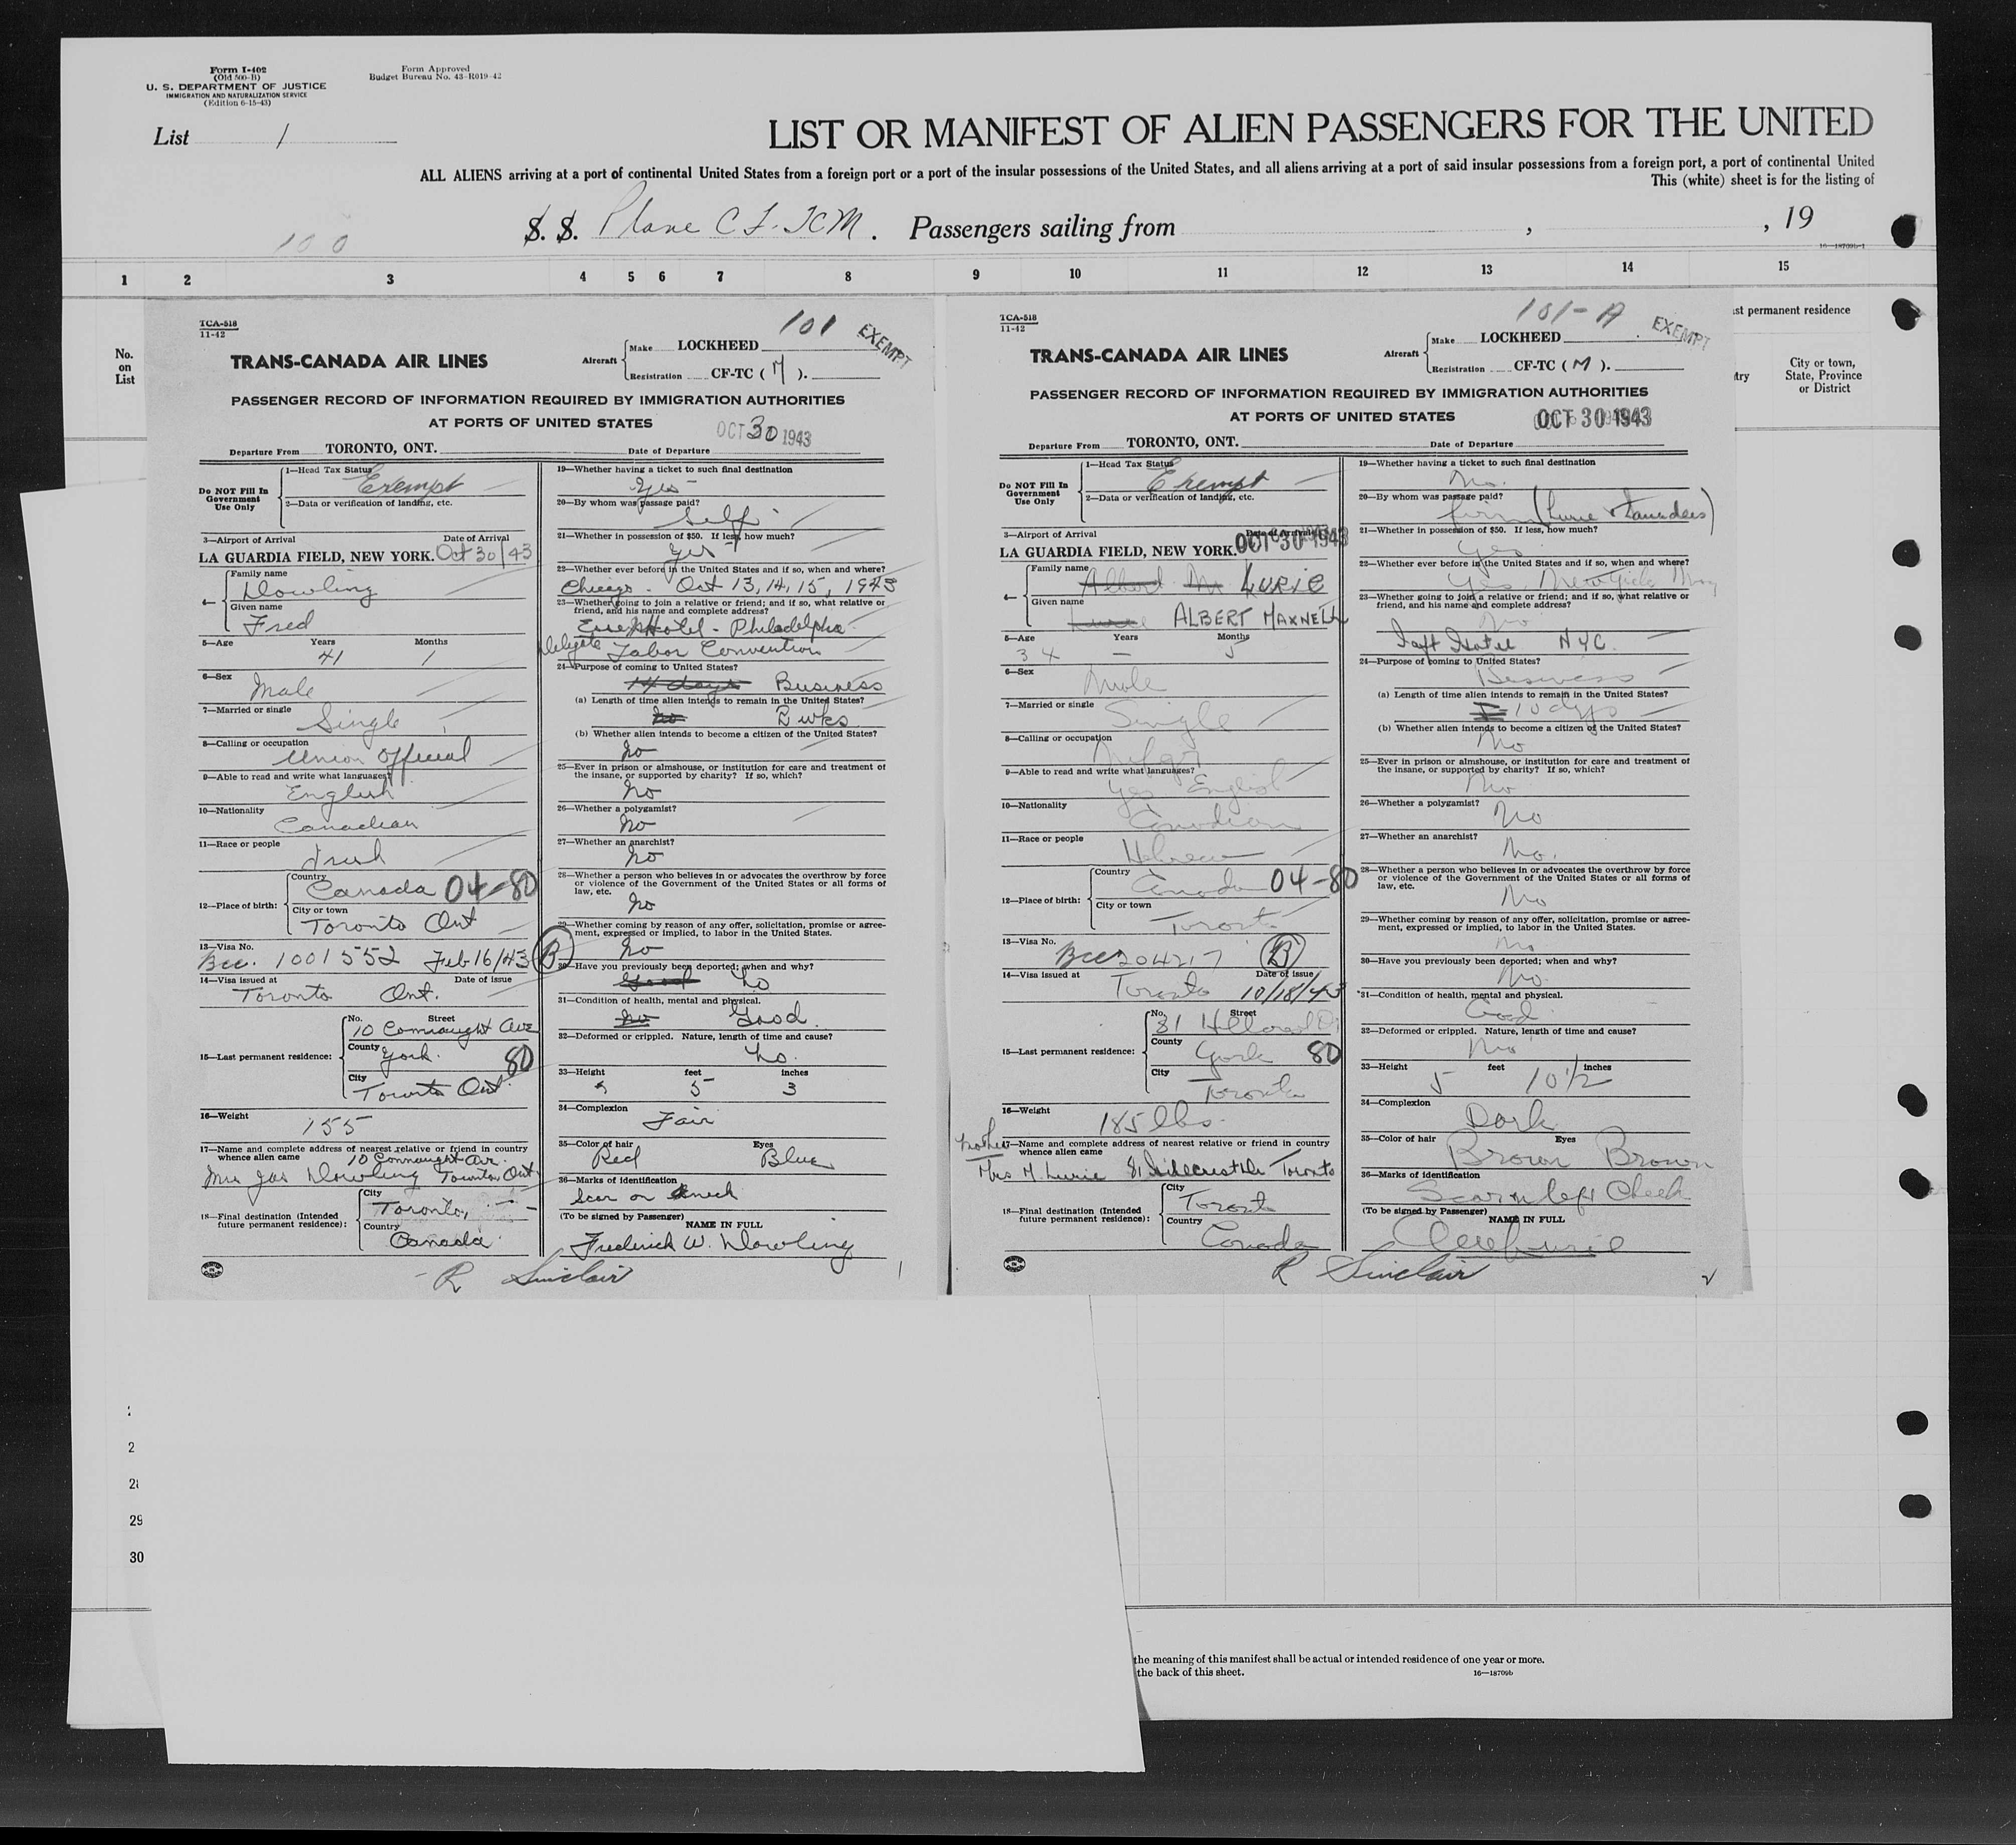 Form I-402
(Old 500-B)
U. S. DEPARTMENT OF JUSTICE
IMMIGRATION AND NATURALIZATION SERVICE
(Edition 6-15-43)
Form Approved
Budget Bureau No. 43-R019-42
List 1
LIST OR MANIFEST OF ALIEN PASSENGERS FOR THE UNITED
ALL ALIENS arriving at a port of continental United States from a foreign port or a port of the insular possessions of the United States, and all aliens arriving at a port of said insular possessions from a foreign port, a port of continental United
This (white) sheet is for the listing of
100
S. S. Plane CF-TCM. Passengers sailing from , , 19
16—18709b-1
1 2 3 4 5 6 7 8 9 10 11 12 13 14 15
No.
on
List
st permanent residence
try
City or town,
State, Province
or District
TCA-518
11-42
101
EXEMPT
TRANS-CANADA AIR LINES
Aircraft
Make LOCKHEED
Registration CF-TC ( M ).
PASSENGER RECORD OF INFORMATION REQUIRED BY IMMIGRATION AUTHORITIES
AT PORTS OF UNITED STATES
OCT 30 1943
Departure From TORONTO, ONT. Date of Departure
Do NOT Fill In
Government
Use Only
1—Head Tax Status
Exempt
2—Data or verification of landing, etc.
3—Airport of Arrival Date of Arrival
LA GUARDIA FIELD, NEW YORK. Oct 30/43
4—
Family name
Dowling
Given name
Fred
5—Age Years Months
41 1
6—Sex
Male
7—Married or single
Single
8—Calling or occupation
Union Official
9—Able to read and write what languages?
English
10—Nationality
Canadian
11—Race or people
Irish
12—Place of birth:
Country
Canada 04-80
City or town
Toronto Ont
13—Visa No.
Bcc. 1001552 Feb 16/43 B
14—Visa issued at Date of issue
Toronto Ont.
15—Last permanent residence:
No. Street
10 Connaught Ave
County
York. 80
City
Toronto Ont.
16—Weight
155
17—Name and complete address of nearest relative or friend in country
whence alien came
10 Connaught Av.
Mrs Jas Dowling Toronto, Ont
18—Final destination (Intended
future permanent residence):
City
Toronto,
Country
Canada
19—Whether having a ticket to such final destination
Yes
20—By whom was passage paid?
Self
21—Whether in possession of $50. If less, how much?
Yes
22—Whether ever before in the United States and if so, when and where?
Chicago. Oct 13, 14, 15, 1943
23—Whether going to join a relative or friend; and if so, what relative or
friend, and his name and complete address?
Hotel - Philadelphia
Delegate Labor Convention
24—Purpose of coming to United States?
14 days Business
(a) Length of time alien intends to remain in the United States?
no 2 wks
(b) Whether alien intends to become a citizen of the United States?
no
25—Ever in prison or almshouse, or institution for care and treatment of
the insane, or supported by charity? If so, which?
no
26—Whether a polygamist?
no
27—Whether an anarchist?
no
28—Whether a person who believes in or advocates the overthrow by force
or violence of the Government of the United States or all forms of
law, etc.
no
29—Whether coming by reason of any offer, solicitation, promise or agree-
ment, expressed or implied, to labor in the United States.
no
30—Have you previously been deported; when and why?
Good No
31—Condition of health, mental and physical.
no Good.
32—Deformed or crippled. Nature, length of time and cause?
No.
33—Height feet inches
5 3
34—Complexion
Fair
35—Color of hair Eyes
Red Blue
36—Marks of identification
Scar on neck
(To be signed by Passenger)
NAME IN FULL
Frederick W. Dowling
R Sinclair 1
TCA-518
11-42
101-A
EXEMPT
TRANS-CANADA AIR LINES
Aircraft
Make LOCKHEED
Registration CF-TC ( M ).
PASSENGER RECORD OF INFORMATION REQUIRED BY IMMIGRATION AUTHORITIES
AT PORTS OF UNITED STATES
OCT 30 1943
Departure From TORONTO, ONT. Date of Departure
Do NOT Fill In
Government
Use Only
1—Head Tax Status
Exempt
2—Data or verification of landing, etc.
3—Airport of Arrival Date of Arrival
LA GUARDIA FIELD, NEW YORK. OCT 30 1943
4—
Family name
Albert M LURIE
Given name
Lurie ALBERT MAXWELL
5—Age Years Months
34 — 5
6—Sex
Male
7—Married or single
Single
8—Calling or occupation
9—Able to read and write what languages?
Yes English
10—Nationality
Canadian
11—Race or people
Hebrew
12—Place of birth:
Country
Canada 04-80
City or town
Toronto
13—Visa No.
Bcc 204217 B
14—Visa issued at Date of issue
Toronto 10/18/43
15—Last permanent residence:
No. Street
81
County
York 80
City
Toronto
16—Weight
185 lbs.
mother
17—Name and complete address of nearest relative or friend in country
whence alien came
Mrs M Lurie 81 Toronto
18—Final destination (Intended
future permanent residence):
City
Toronto
Country
Canada
19—Whether having a ticket to such final destination
No.
20—By whom was passage paid?
firm (Lurie & Saunders)
21—Whether in possession of $50. If less, how much?
Yes
22—Whether ever before in the United States and if so, when and where?
Yes, New York May
23—Whether going to join a relative or friend; and if so, what relative or
friend, and his name and complete address?
No
Taft Hotel NYC.
24—Purpose of coming to United States?
Business
(a) Length of time alien intends to remain in the United States?
10 dys
(b) Whether alien intends to become a citizen of the United States?
No
25—Ever in prison or almshouse, or institution for care and treatment of
the insane, or supported by charity? If so, which?
No
26—Whether a polygamist?
No
27—Whether an anarchist?
No.
28—Whether a person who believes in or advocates the overthrow by force
or violence of the Government of the United States or all forms of
law, etc.
No
29—Whether coming by reason of any offer, solicitation, promise or agree-
ment, expressed or implied, to labor in the United States.
No
30—Have you previously been deported; when and why?
No.
31—Condition of health, mental and physical.
Good
32—Deformed or crippled. Nature, length of time and cause?
No
33—Height feet inches
5 10 1/2
34—Complexion
Dark
35—Color of hair Eyes
Brown Brown
36—Marks of identification
Scar on left Cheek
(To be signed by Passenger)
NAME IN FULL
R Sinclair 2
2
29
30
the meaning of this manifest shall be actual or intended residence of one year or more.
the back of this sheet.
16—18709b